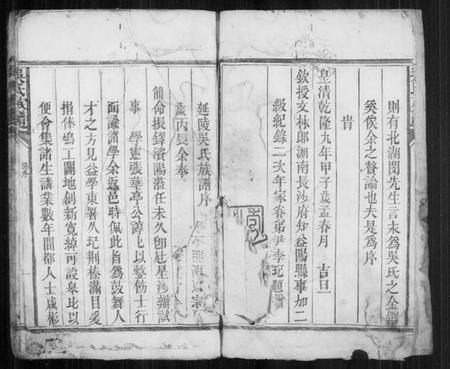 則有北湖閔先生言未為吳氏之金
奚俟余之贅論也夫是為序
旹
皇清乾隆九年甲子歲孟春月 吉旦
欽授文林郎湖南長沙府知益陽縣事加二
級紀錄二次年家眷弟尹李
延陵吳氏族譜序
歲丙辰余奉
簡命振鐸濱陽蒞任未久卽赴星沙辦試
事 學憲張華亭公諱以整飭士行
面諭諸學余返邑時佩此旨為鼓舞人
才之方見益學東署久圮荊榛滿目爰
捐俸鳩工闢地創新寬綽可設皋比以
便會集諸生講業數年間都人士咸彬
吳氏族譜